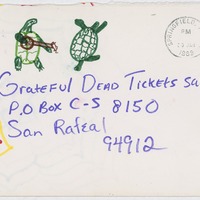 SPRINGFIELD
PM
Grateful Dead Tickets Sa
P.O Box C-S 8150
San Rafeal
94912